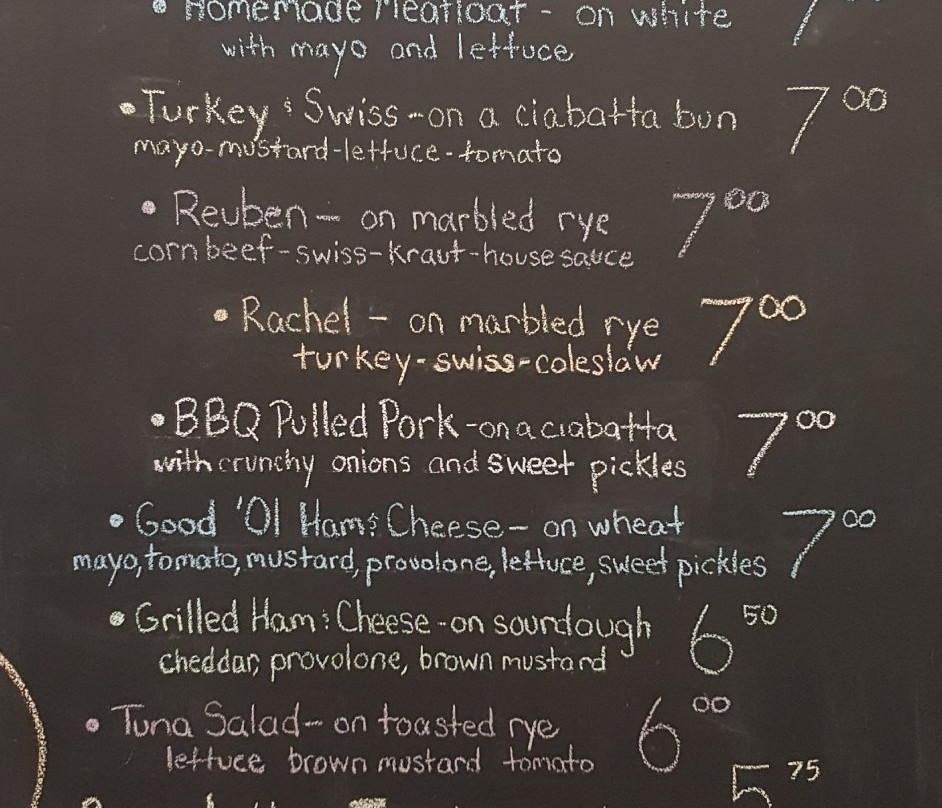 • Homemade Meatloaf - on white 7
with mayo and lettuce
• Turkey & Swiss - on a ciabatta bun 7 00
mayo-mustard-lettuce-tomato
• Reuben - on marbled rye 7 00
corn beef-swiss-kraut-house sauce
• Rachel - on marbled rye 7 00
turkey-swiss-coleslaw
• BBQ Pulled Pork - on a ciabatta 7 00
with crunchy onions and sweet pickles
• Good 'Ol Ham & Cheese - on wheat 7 00
mayo, tomato, mustard, provolone, lettuce, sweet pickles
• Grilled Ham & Cheese - on sourdough 6 50
cheddar, provolone, brown mustard
• Tuna Salad - on toasted rye 6 00
lettuce brown mustard tomato
5 75